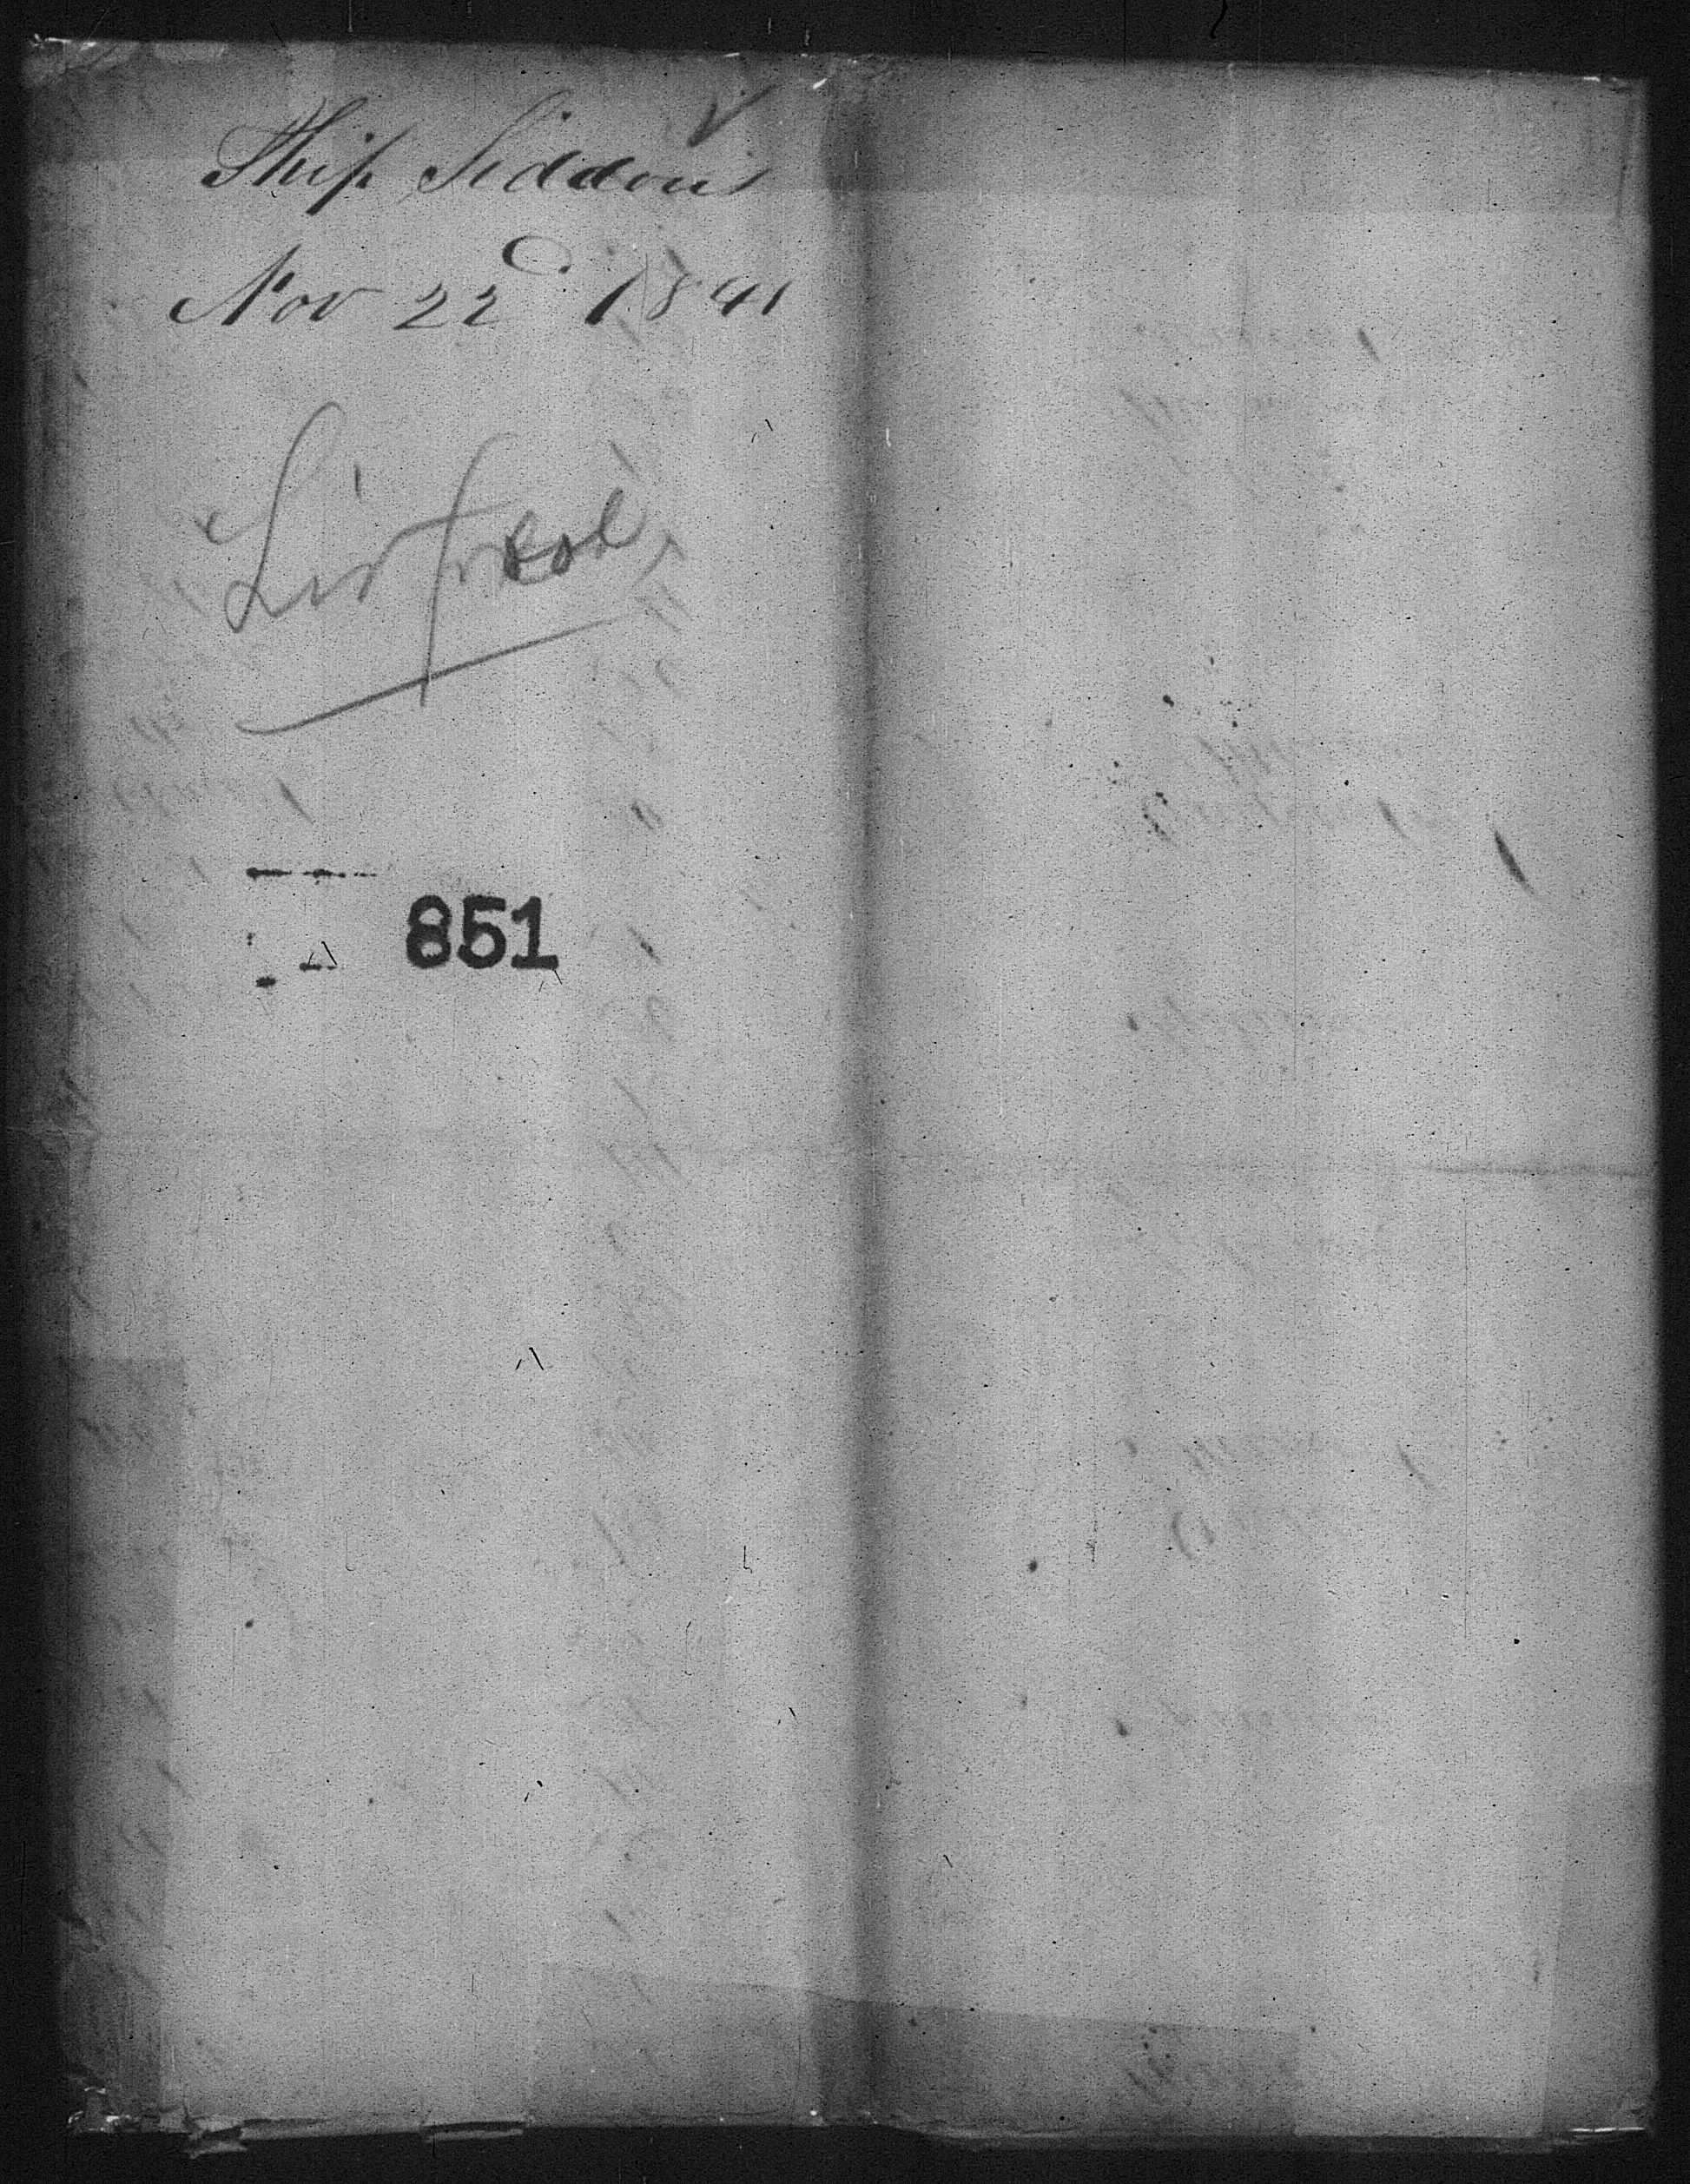 Ship Siddons
Nov 22d 1841
Liverpool
851